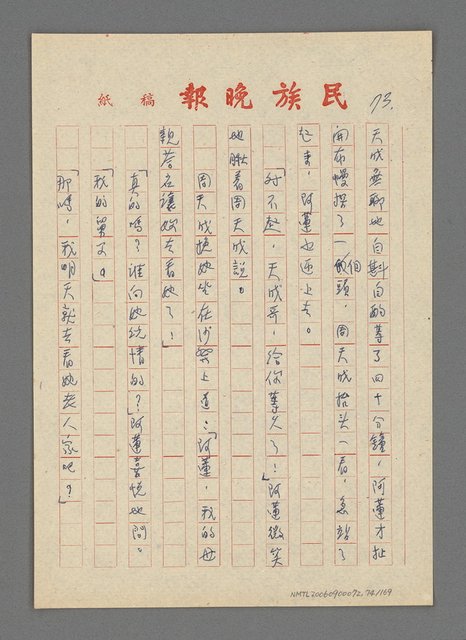 民族晚報 稿紙
73.
天成無聊地自斟自酌等了四十分鐘，阿蓮才扯
開布幔探了一個頭，周天成抬头一看，急站了
起來，阿蓮也迎上去。
「对不起，天成哥，给你等久了！」阿蓮微笑
地瞅着周天成說。
周天成挽她坐在沙發上道：「阿蓮，我的母
親答应讓妳去看她了！」
「真的嗎？誰向她說情的？」阿蓮喜悅地問。
「我的舅父。」
「那嗎，我明天就去看她老人家吧？」
NMTL20060900072, 74/169